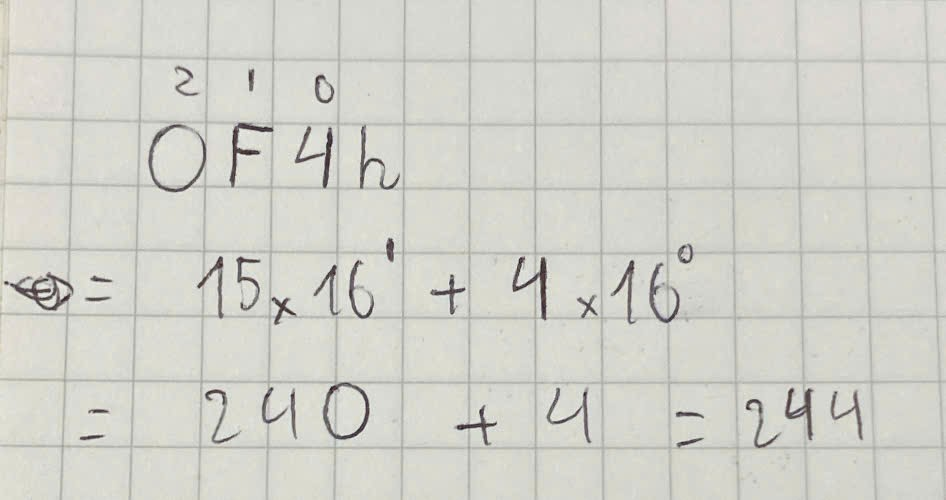 2 1 0
0F4h
= 15 × 16¹ + 4 × 16⁰
= 240 + 4 = 244